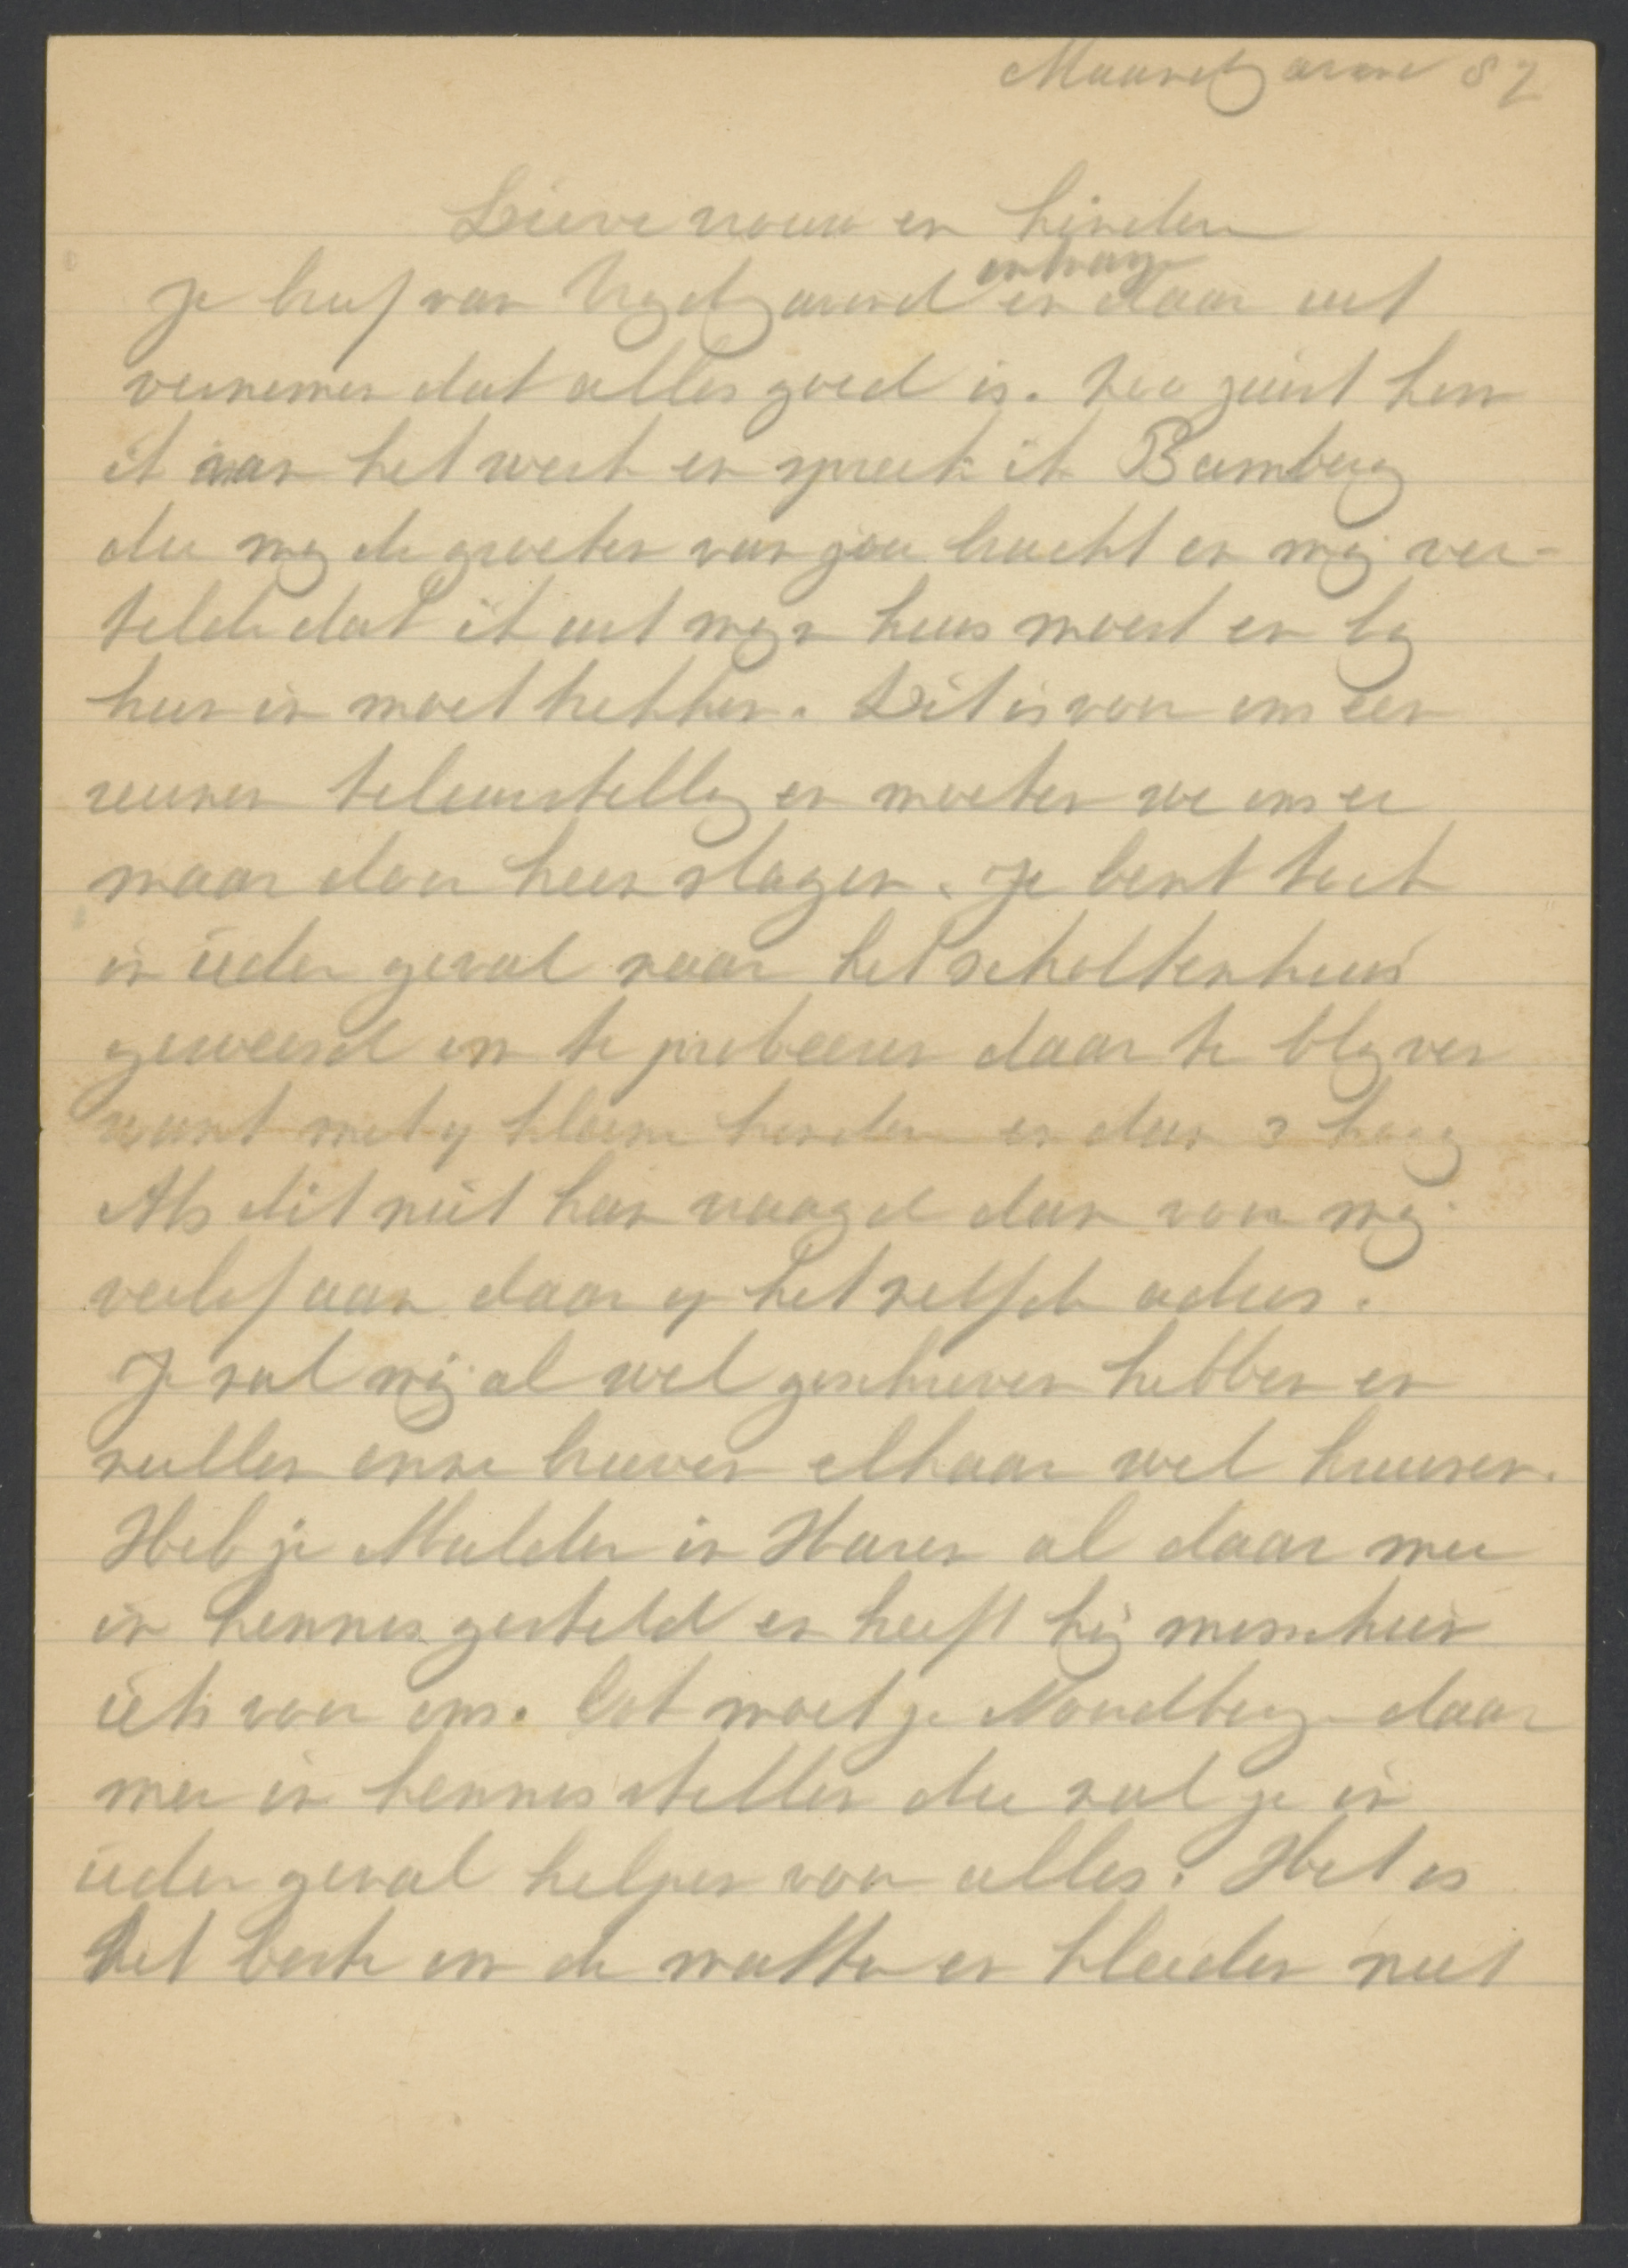 Maandagavond 8 7
Lieve vrouw en kinders
ontvang
Je brief van Vrydagavond en daar uit
vernomen dat alles goed is. Zoo juist kom
ik van het werk en spreek ik Bamberg
die my de groeten van jou bracht en mij ver-
telde dat ik uit myn huis moest en by
huis in moet trekken. Dit is voor ons een
teleurstelling en moeten we ons er
maar door heen slagen. Je bent toch
in ieder geval naar het scholtenhuis
geweesd om te probeeren daar te blyven
want met 4 kleine kinders en dan 3 hoog
Als dit niet kan vraagd dan voor my
verlof aan daar op het zelfde adres.
Je zal mij al wel geschreven hebben en
zullen onze brieven elkaar wel kruisen.
Heb je Mulder in Haren al daar mee
in kennes gesteld en heeft hij misschien
iets voor ons. Ook moet je Noudberg daar
mee in kennes stellen die zal je in
ieder geval helpen voor alles. Het is
het beste om de matten en kleeden niet